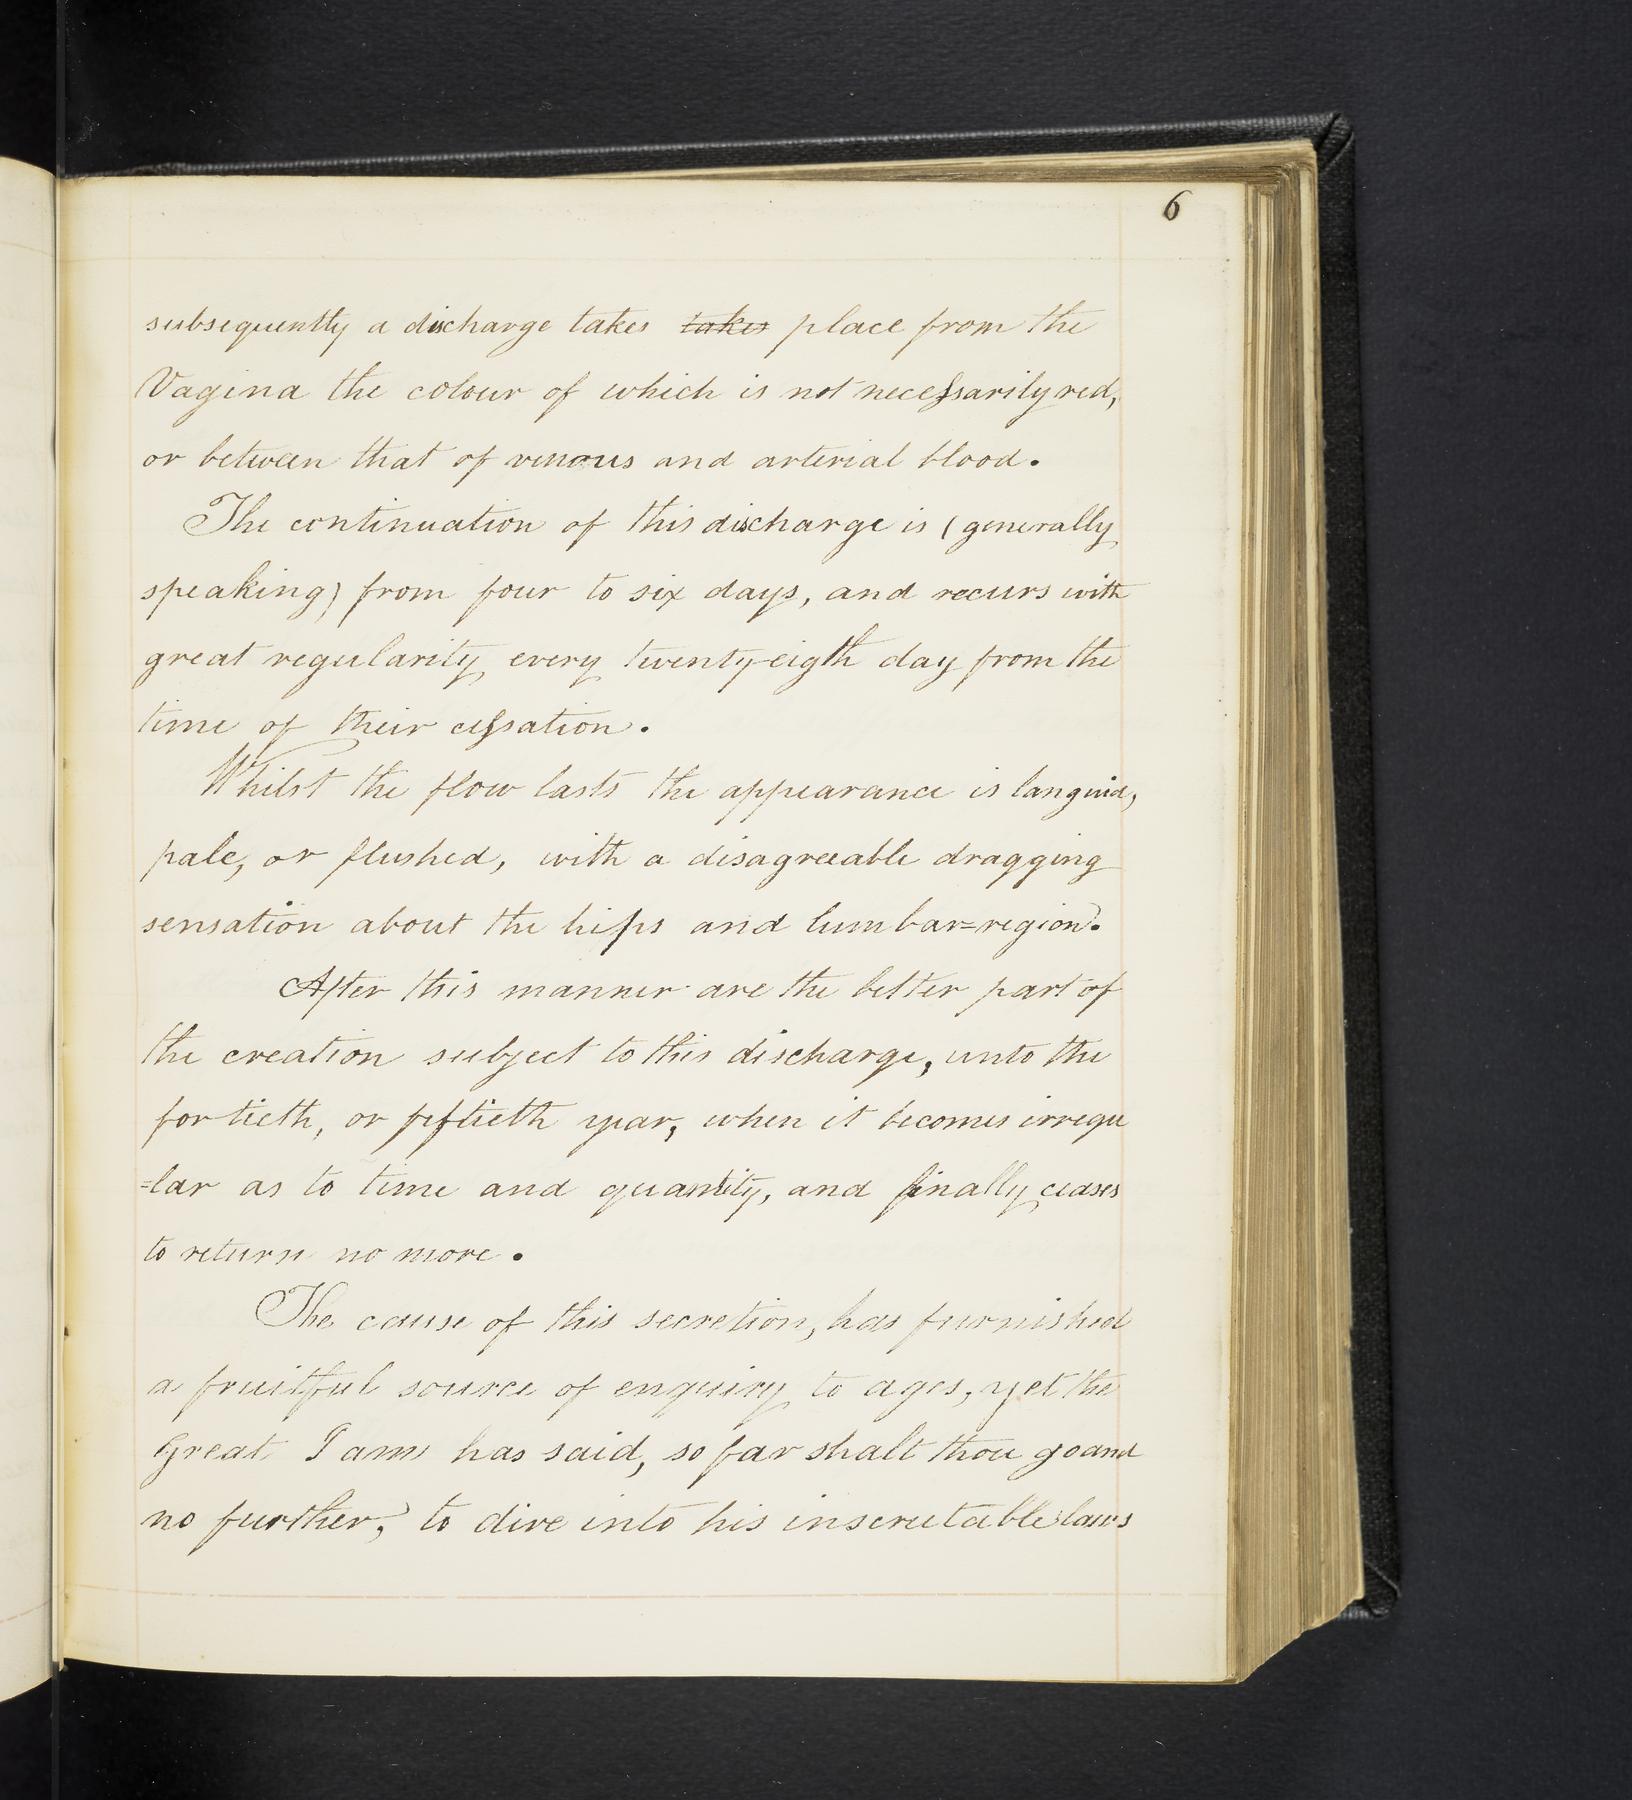 6
subsequently a discharge takes takes place from the
Vagina the colour of which is not necessarily red,
or between that of venous and arterial blood.
The continuation of this discharge is (generally
speaking) from four to six days, and recurs with
great regularity every twenty-eigth day from the
time of their cessation.
Whilst the flow lasts the appearance is languid,
pale, or flushed, with a disagreeable dragging
sensation about the hips and lumbar=region.
After this manner are the better part of
the creation subject to this discharge, unto the
fortieth, or fiftieth year, when it becomes irregu
=lar as to time and quantity, and finally ceases
to return no more.
The cause of this secretion, has furnished
a fruitful source of enquiry to ages, yet the
Great I am has said, so far shalt thou go and
no further, to dive into his inscrutable laws